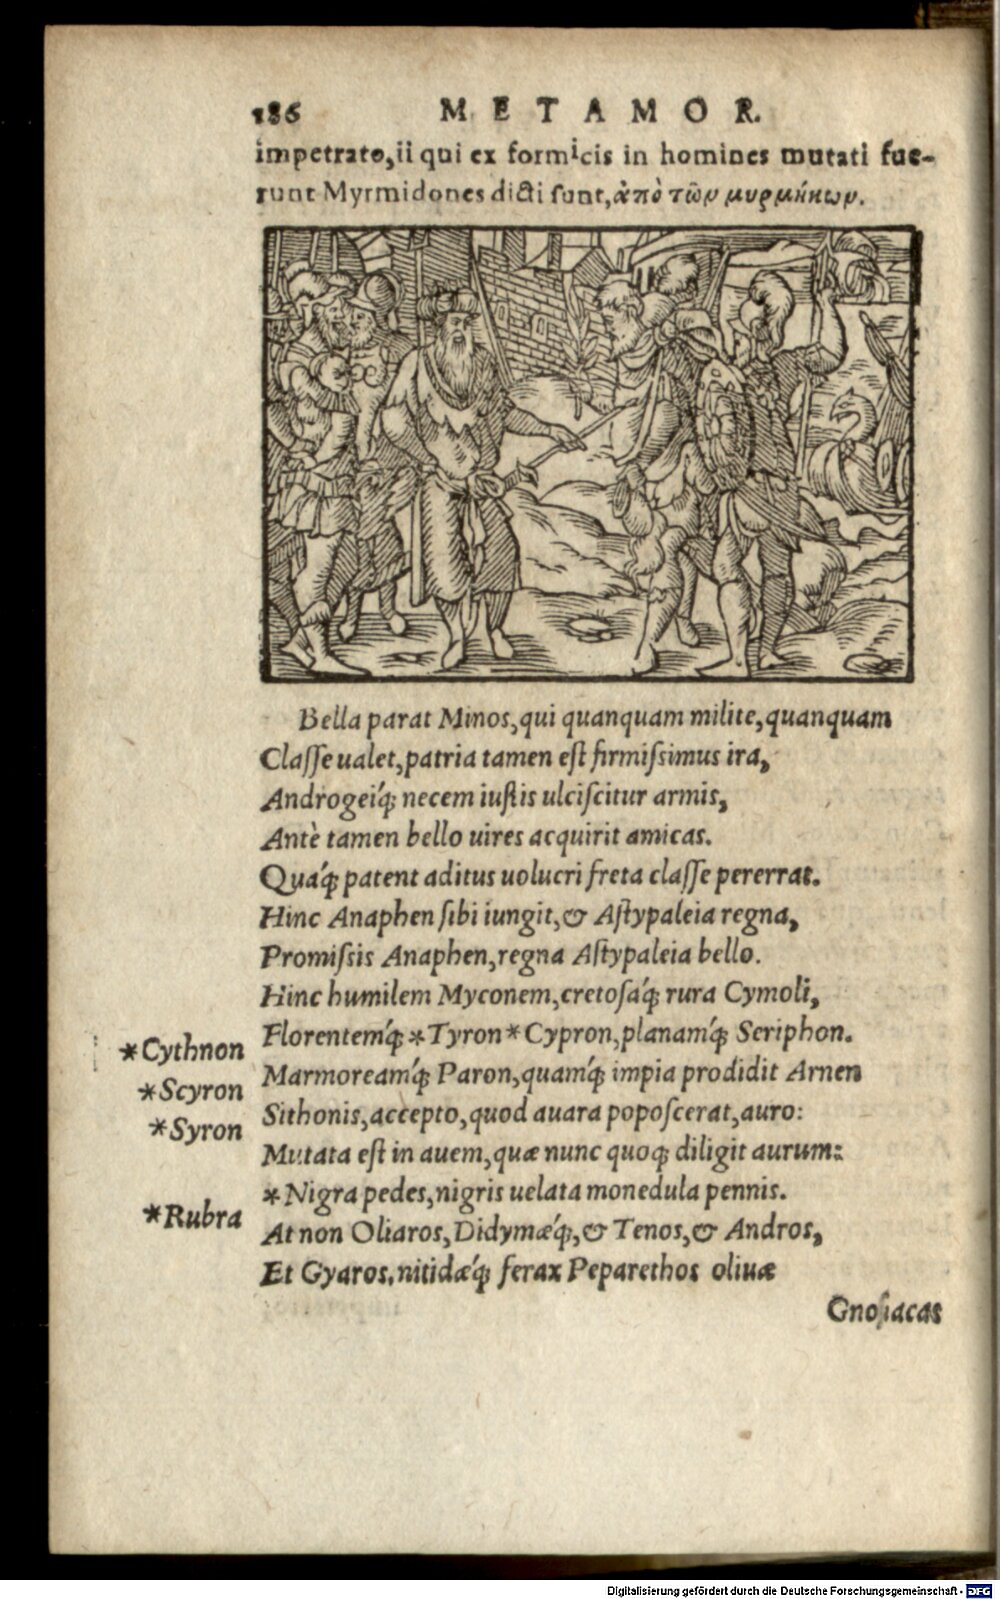 186 METAMOR.
impetrato,ii qui ex formicis in homines mutati fue-
runt Myrmidones dicti sunt,ἀπὸ τῶν μυρμήκων.
Bella parat Minos,qui quanquam milite,quanquam
Classe ualet,patria tamen est firmissimus ira,
Androgeiq́; necem iustis ulciscitur armis,
Antè tamen bello uires acquirit amicas.
Quáq; patent aditus uolucri freta classe pererrat.
Hinc Anaphen sibi iungit,& Astypaleia regna,
Promissis Anaphen,regna Astypaleia bello.
Hinc humilem Myconem,cretosáq; rura Cymoli,
*Cythnon Florentemq́; *Tyron *Cypron,planamq́; Seriphon.
*Scyron Marmoreamq́; Paron,quamq́; impia prodidit Arnen
*Syron Sithonis,accepto,quod auara poposcerat,auro:
Mutata est in auem,quæ nunc quoq; diligit aurum:
*Rubra *Nigra pedes,nigris uelata monedula pennis.
At non Oliaros,Didymæq́;,& Tenos,& Andros,
Et Gyaros,nitidæq́; ferax Peparethos oliuæ
Gnosiacas
Digitalisierung gefördert durch die Deutsche Forschungsgemeinschaft - DFG